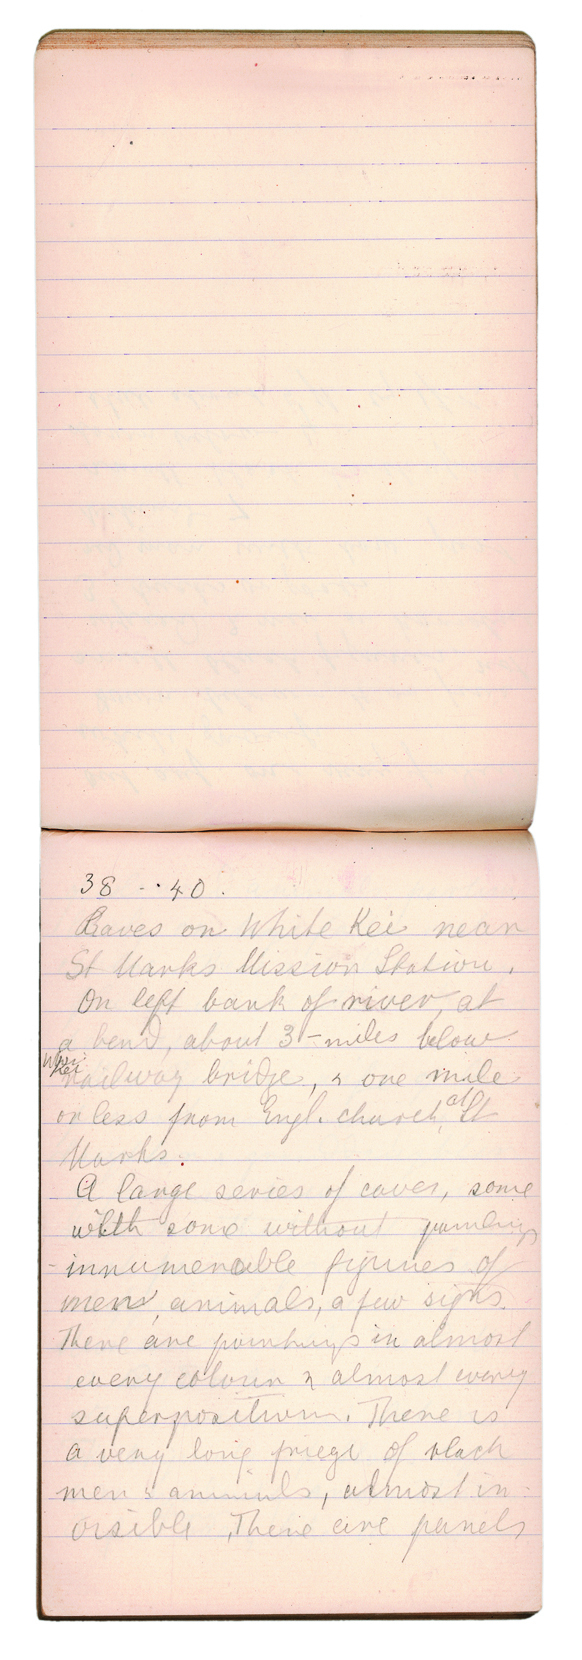 38 - . 40 .
Caves on White Kei near
St Marks Mission Station.
On left bank of river, at
a bend, about 3 - miles below
White Kei
railway bridge, & one mile
or less from Engl. church, at St
Marks.
A large series of caves, some
with some without paintings
innumerable figures of
men, animals, a few signs.
There are paintings in almost
every colour & almost every
superposition. There is
a very long friege of black
men & animals, almost in-
visible. There are panels